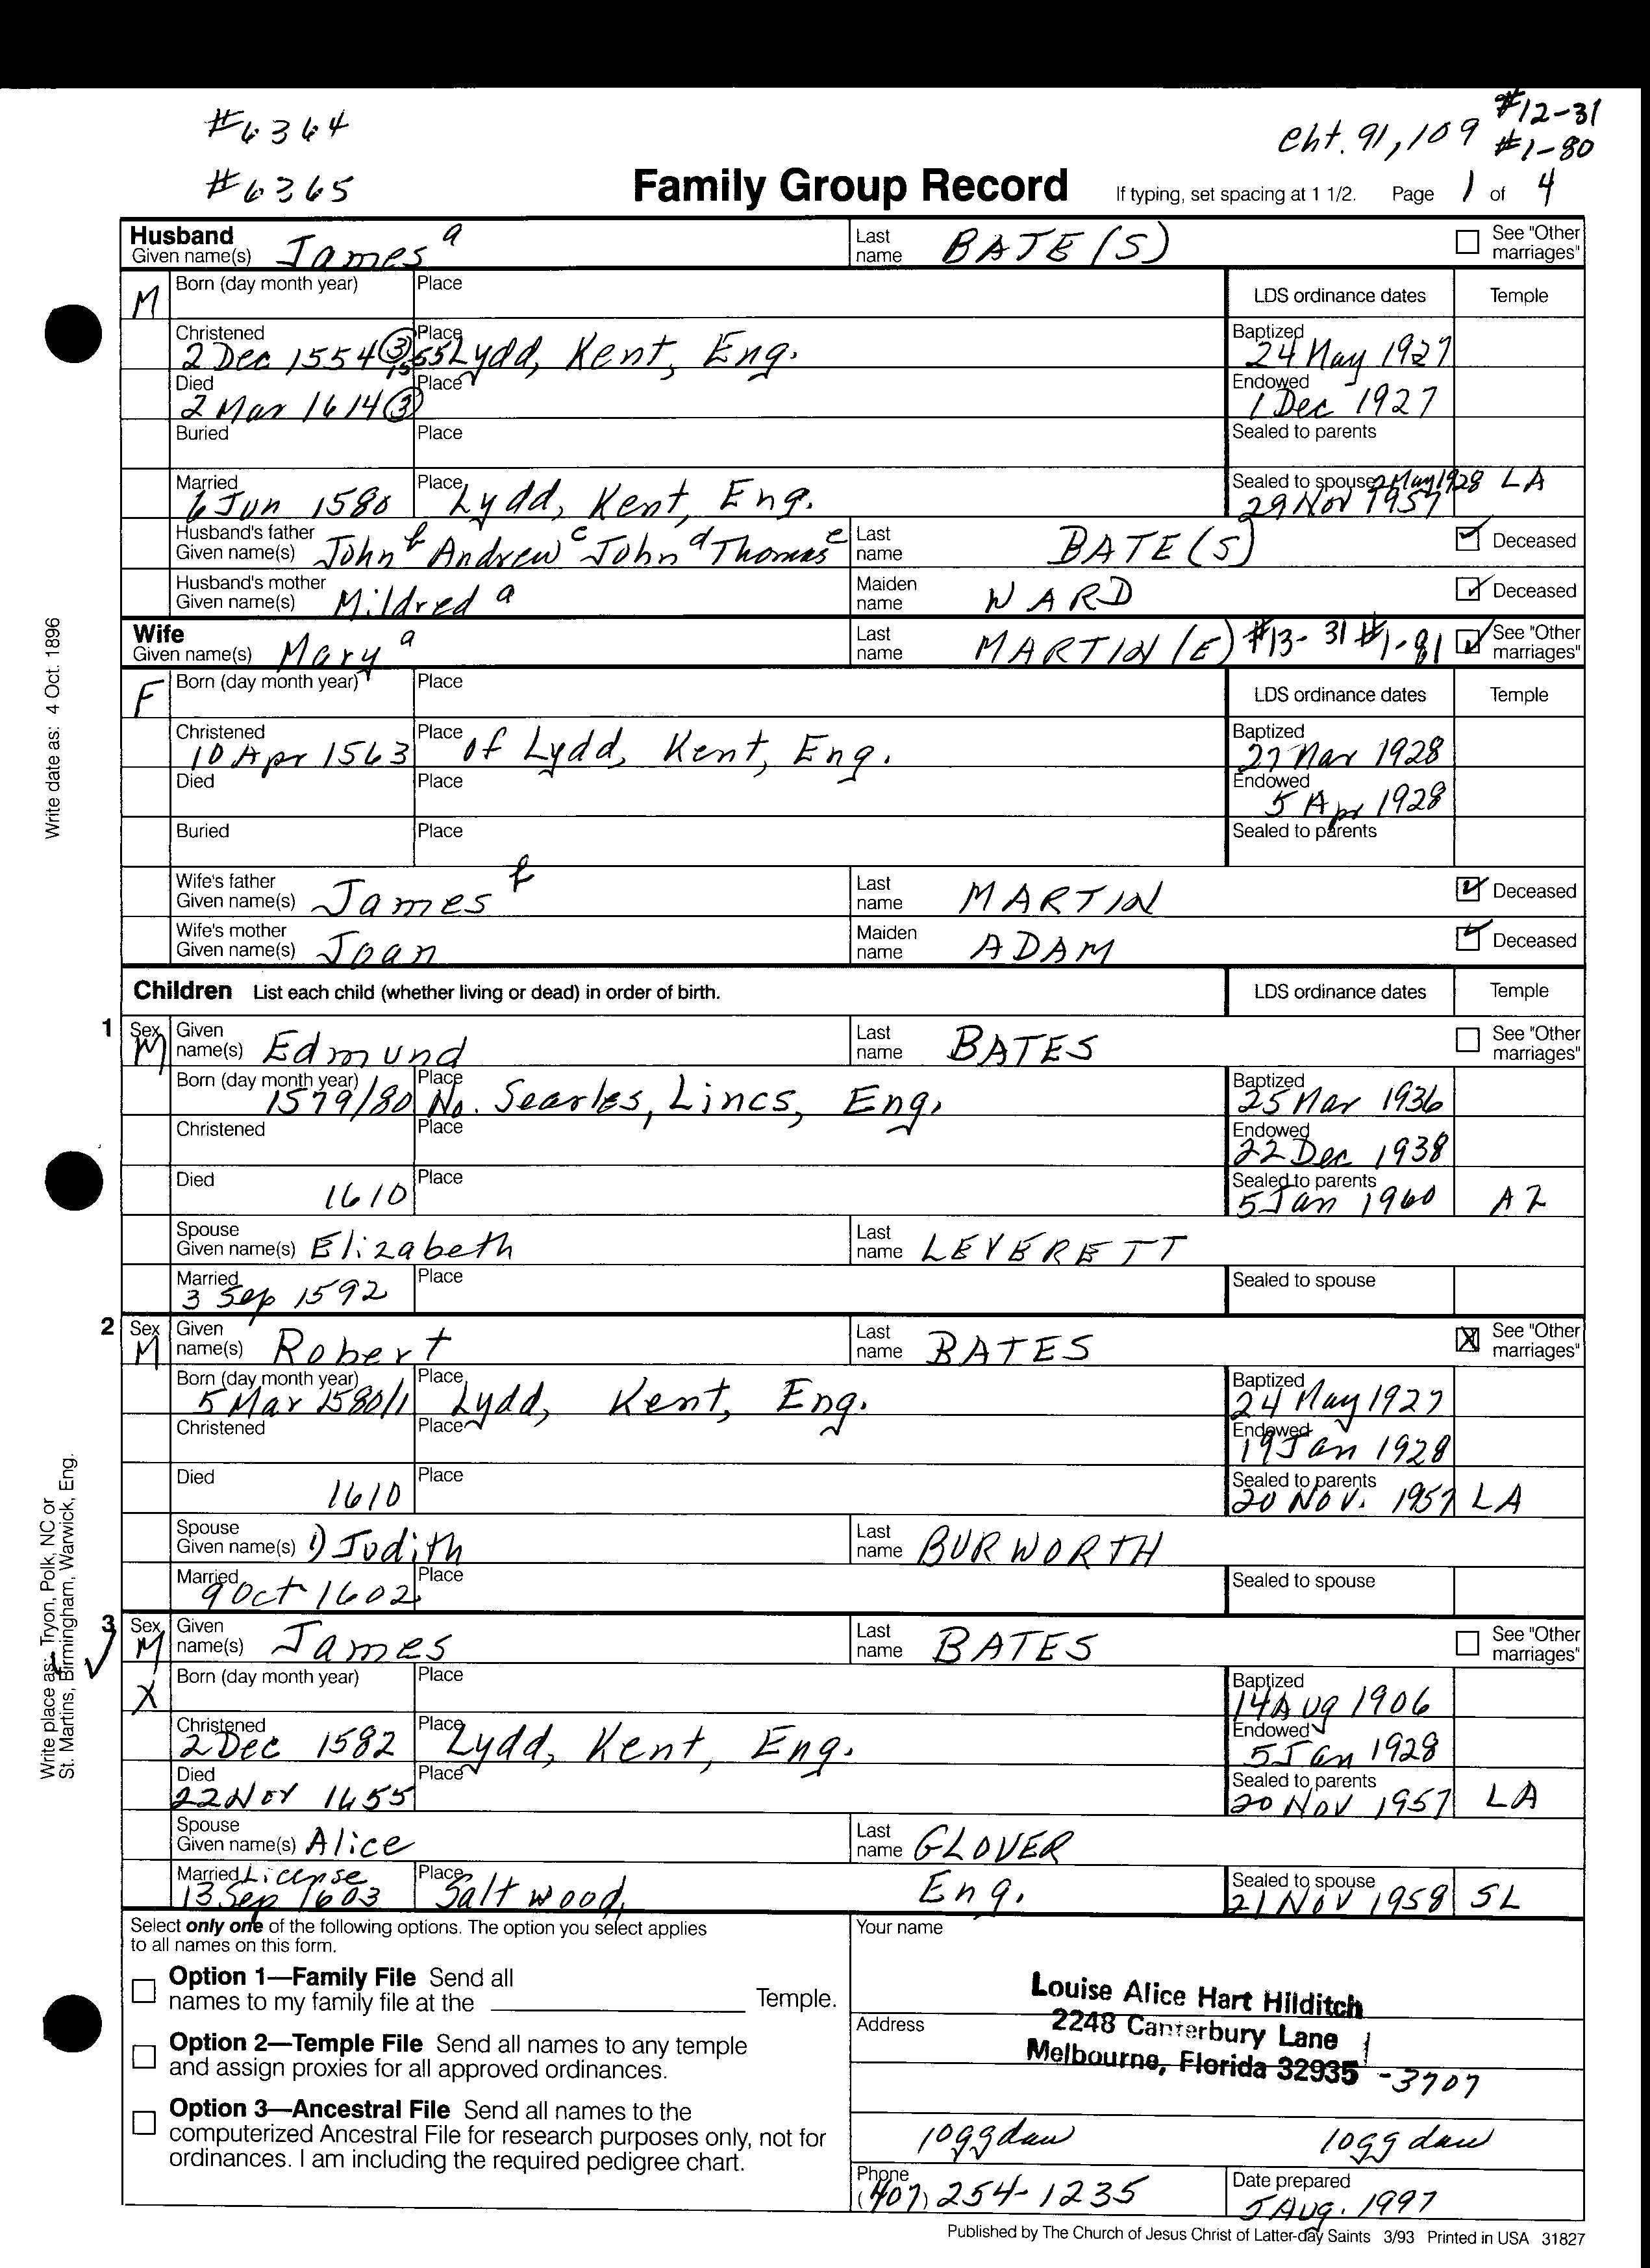 #6364
cht. 91, 109 #12-31
#1-80
#6365
Family Group Record If typing, set spacing at 1 1/2. Page 1 of 4
Husband
Given name(s) James a Last name BATE(S) See "Other marriages"
M Born (day month year) Place LDS ordinance dates Temple
Christened 2 Dec 1554 (3) 1555 Place Lydd, Kent, Eng. Baptized 24 May 1927
Died 2 Mar 1614 (3) Place Endowed 1 Dec 1927
Buried Place Sealed to parents
Married 6 Jun 1580 Place Lydd, Kent, Eng. Sealed to spouse 2 May 1928 LA
29 Nov 1957
Husband's father
Given name(s) John b Andrew c John d Thomas e Last name BATE(S) Deceased
Husband's mother
Given name(s) Mildred a Maiden name WARD Deceased
Wife
Given name(s) Mary a Last name MARTIN(E) #13-31 #1-81 See "Other marriages"
F Born (day month year) Place LDS ordinance dates Temple
Christened 10 Apr 1563 Place of Lydd, Kent, Eng. Baptized 27 Mar 1928
Died Place Endowed 5 Apr 1928
Buried Place Sealed to parents
Wife's father
Given name(s) James b Last name MARTIN Deceased
Wife's mother
Given name(s) Joan Maiden name ADAM Deceased
Children List each child (whether living or dead) in order of birth. LDS ordinance dates Temple
1 Sex M Given name(s) Edmund Last name BATES See "Other marriages"
Born (day month year) 1579/80 Place No. Searles, Lincs, Eng. Baptized 25 Mar 1936
Christened Place Endowed 22 Dec 1938
Died 1610 Place Sealed to parents 5 Jan 1960 AZ
Spouse
Given name(s) Elizabeth Last name LEVERETT
Married 3 Sep 1592 Place Sealed to spouse
2 Sex M Given name(s) Robert Last name BATES X See "Other marriages"
Born (day month year) 5 Mar 1580/1 Place Lydd, Kent, Eng. Baptized 24 May 1927
Christened Place Endowed 19 Jan 1928
Died 1610 Place Sealed to parents 20 Nov. 1957 LA
Spouse
Given name(s) 1) Judith Last name BURWORTH
Married 9 Oct 1602 Place Sealed to spouse
3 Sex M Given name(s) James Last name BATES See "Other marriages"
X Born (day month year) Place Baptized 14 Aug 1906
Christened 2 Dec 1582 Place Lydd, Kent, Eng. Endowed 5 Jan 1928
Died 22 Nov 1655 Place Sealed to parents 20 Nov 1957 LA
Spouse
Given name(s) Alice Last name GLOVER
Married License 13 Sep 1603 Place Saltwood, Eng. Sealed to spouse 21 Nov 1958 SL
Select only one of the following options. The option you select applies
to all names on this form.
Option 1—Family File Send all
names to my family file at the Temple.
Option 2—Temple File Send all names to any temple
and assign proxies for all approved ordinances.
Option 3—Ancestral File Send all names to the
computerized Ancestral File for research purposes only, not for
ordinances. I am including the required pedigree chart.
Your name
Louise Alice Hart Hilditch
Address
2248 Canterbury Lane
Melbourne, Florida 32935 -3707
Phone
(407) 254-1235
Date prepared
5 Aug. 1997
Published by The Church of Jesus Christ of Latter-day Saints 3/93 Printed in USA 31827
Write date as: 4 Oct. 1896
Write place as: Tryon, Polk, NC or
St. Martins, Birmingham, Warwick, Eng.